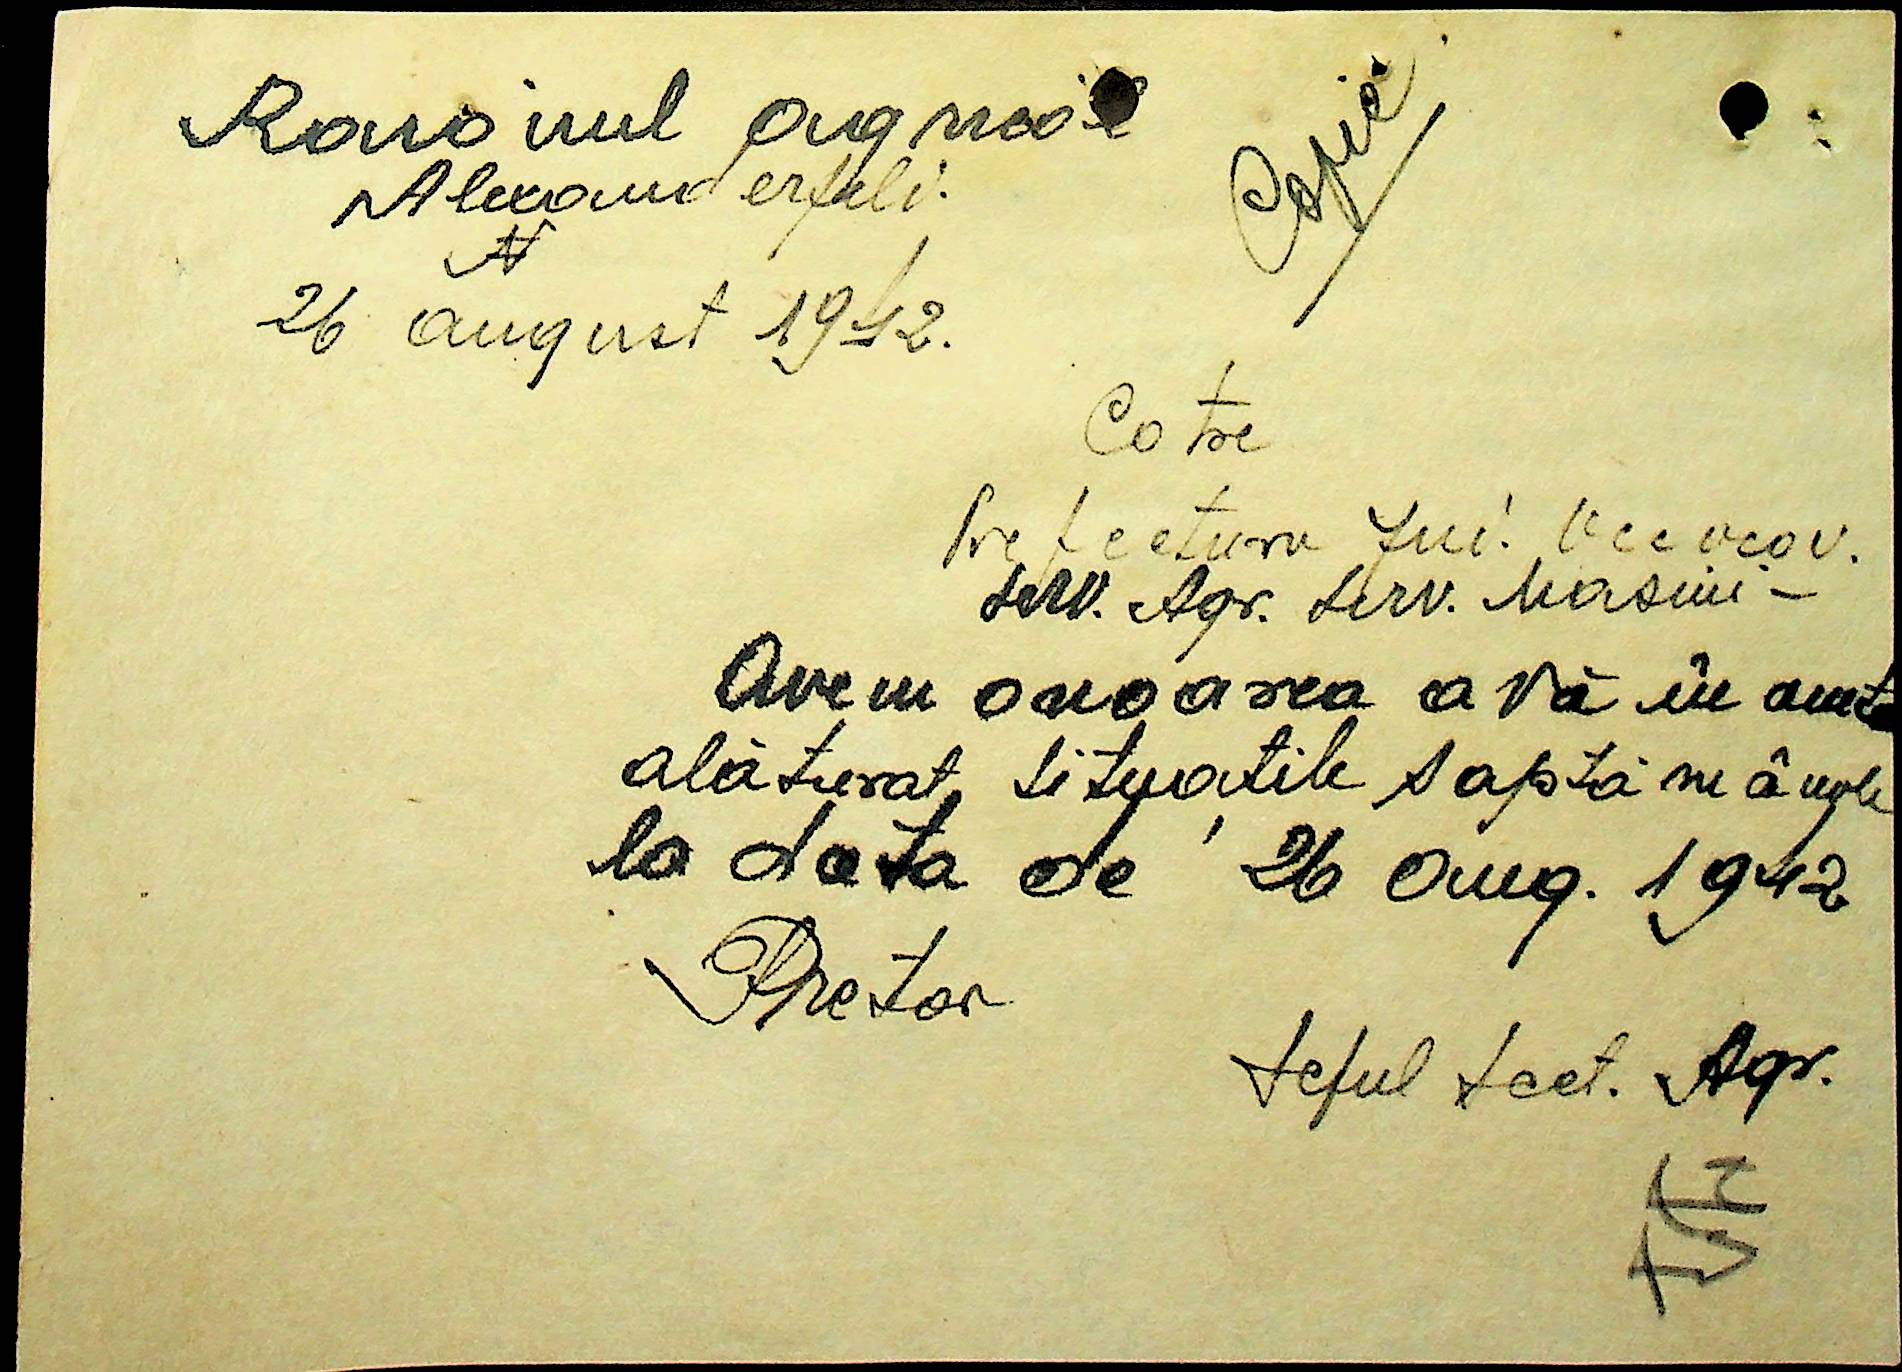 Raionul
Alexanderfeld.
N
26 august 1942.
Copie
Cotre
Prefectura Jud.
Serv. Agr. Serv. Masini -
Avem onoarea a vă
alăturat, situatile saptămânale
la data de 26 Aug. 1942
Pretor
Seful Sect. Agr.